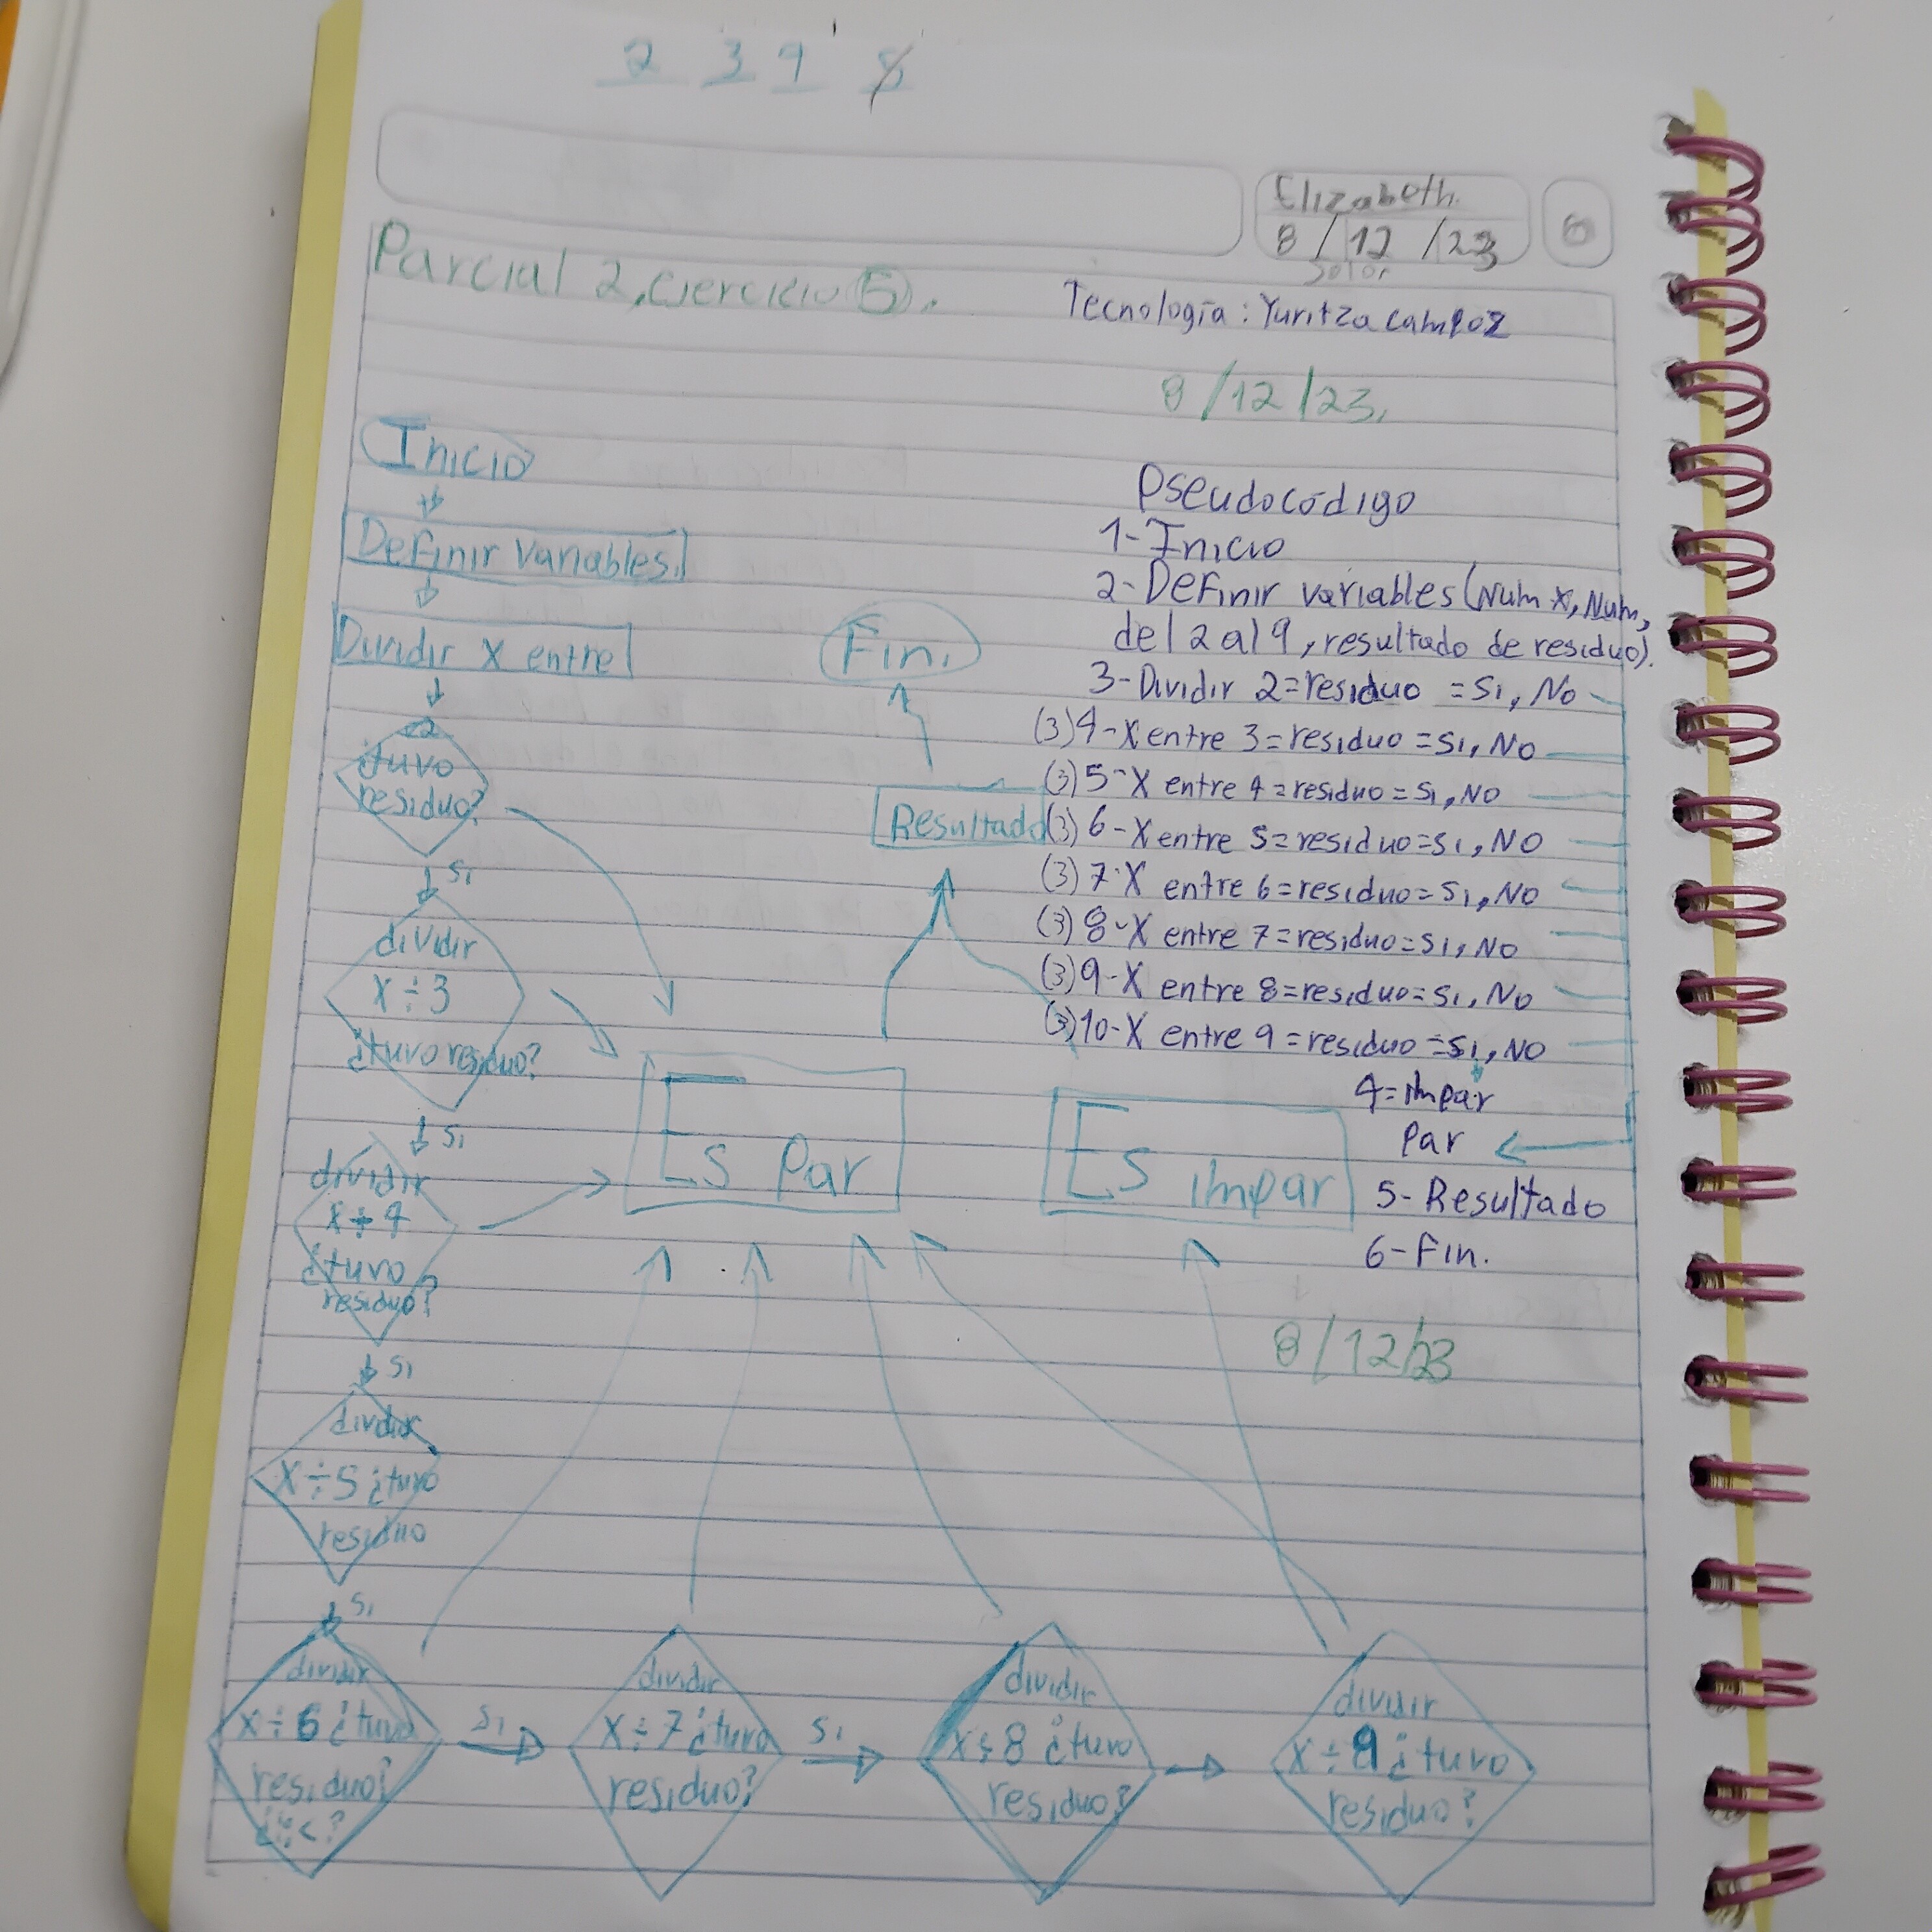 2 3 9 8
Elizabeth.
8/12/23
Parcial 2, ejercicio 5.
Tecnología: Yuritza Campoz
8/12/23.
Inicio
Definir Variables.
Dividir X entre
2
¿tuvo
residuo?
Si
dividir
X ÷ 3
¿tuvo residuo?
Si
dividir
X ÷ 4
¿tuvo
residuo?
Si
dividir
X ÷ 5 ¿tuvo
residuo
Si
dividir
X ÷ 6 ¿tuvo
residuo?
Si
dividir
X ÷ 7 ¿tuvo
residuo?
Si
dividir
X ÷ 8 ¿tuvo
residuo?
dividir
X ÷ 9 ¿tuvo
residuo?
Es Par
Es impar
Resultado
Fin.
Pseudocódigo
1- Inicio
2- Definir variables (Num x, Num,
del 2 al 9, resultado de residuo).
3- Dividir 2 = residuo = Si, No
(3) 4- X entre 3 = residuo = Si, NO
(3) 5- X entre 4 = residuo = Si, NO
(3) 6- X entre 5 = residuo = Si, NO
(3) 7- X entre 6 = residuo = Si, NO
(3) 8- X entre 7 = residuo = Si, NO
(3) 9- X entre 8 = residuo = Si, No
(3) 10- X entre 9 = residuo = Si, NO
4= impar
Par
5- Resultado
6- Fin.
8/12/23